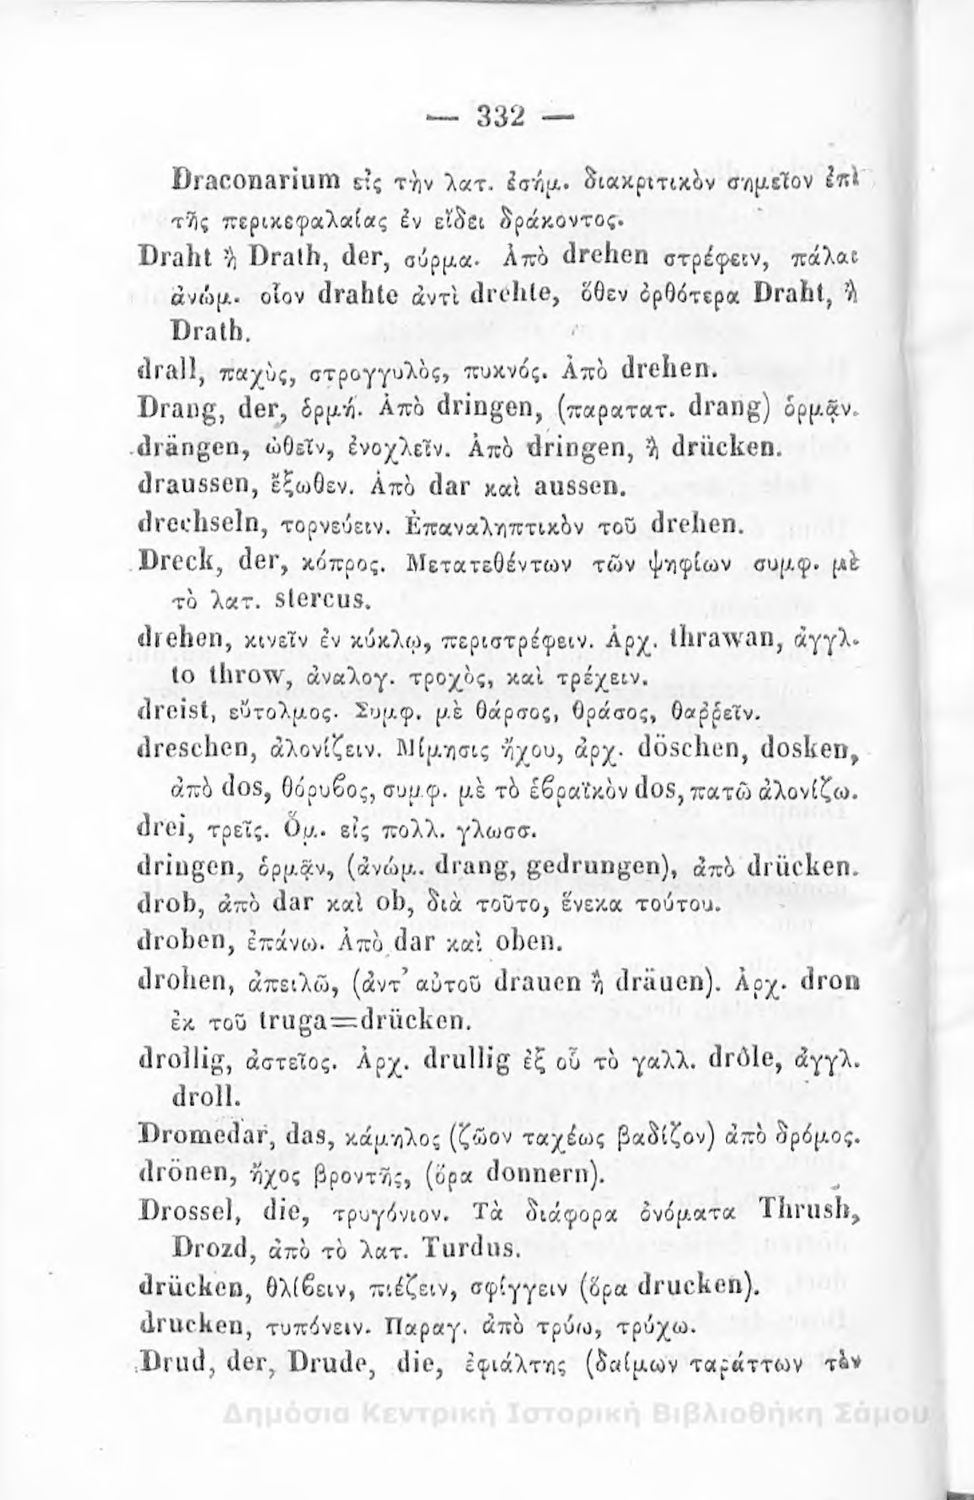 — 332 —
Draconarium εἰς τὴν λατ. ἐσήμ. διακριτικὸν σημεῖον ἐπὶ
τῆς περικεφαλαίας ἐν εἴδει δράκοντος.
Draht ἢ Drath, der, σύρμα. Ἀπὸ drehen στρέφειν, πάλαι
ἀνώμ. οἷον drahte ἀντὶ drehte, ὅθεν ὀρθότερα Draht, ἢ
Drath.
drall, παχὺς, στρογγυλὸς, πυκνός. Ἀπὸ drehen.
Drang, der, ὁρμή. Ἀπὸ dringen, (παρατατ. drang) ὁρμᾷν.
drängen, ὠθεῖν, ἐνοχλεῖν. Ἀπὸ dringen, ἢ drücken.
draussen, ἔξωθεν. Ἀπὸ dar καὶ aussen.
drechseln, τορνεύειν. Ἐπαναληπτικὸν τοῦ drehen.
Dreck, der, κόπρος. Μετατεθέντων τῶν ψηφίων συμφ. μὲ
τὸ λατ. stercus.
drehen, κινεῖν ἐν κύκλῳ, περιστρέφειν. Ἀρχ. thrawan, ἀγγλ.
to throw, ἀναλογ. τροχὸς, καὶ τρέχειν.
dreist, εὔτολμος. Συμφ. μὲ θάρσος, θράσος, θαῤῥεῖν.
dreschen, ἁλονίζειν. Μίμησις ἤχου, ἀρχ. döschen, dosken,
ἀπὸ dos, θόρυϐος, συμφ. μὲ τὸ ἑϐραϊκὸν dos, πατῶ ἁλονίζω.
drei, τρεῖς. Ὅμ. εἰς πολλ. γλωσσ.
dringen, ὁρμᾷν, (ἀνώμ. drang, gedrungen), ἀπὸ drücken.
drob, ἀπὸ dar καὶ ob, διὰ τοῦτο, ἕνεκα τούτου.
droben, ἐπάνω. Ἀπὸ dar καὶ oben.
drohen, ἀπειλῶ, (ἀντ’ αὐτοῦ drauen ἢ dräuen). Ἀρχ. dron
ἐκ τοῦ truga=drücken.
drollig, ἀστεῖος. Ἀρχ. drullig ἐξ οὗ τὸ γαλλ. drôle, ἀγγλ.
droll.
Dromedar, das, κάμηλος (ζῶον ταχέως βαδίζον) ἀπὸ δρόμος.
drönen, ἦχος βροντῆς, (ὅρα donnern).
Drossel, die, τρυγόνιον. Τὰ διάφορα ὀνόματα Thrush,
Drozd, ἀπὸ τὸ λατ. Turdus.
drücken, θλίϐειν, πιέζειν, σφίγγειν (ὅρα drucken).
drucken, τυπόνειν. Παραγ. ἀπὸ τρύω, τρύχω.
Drud, der, Drude, die, ἐφιάλτης (δαίμων ταράττων τὸν
Δημόσια Κεντρική Ιστορική Βιβλιοθήκη Σάμου